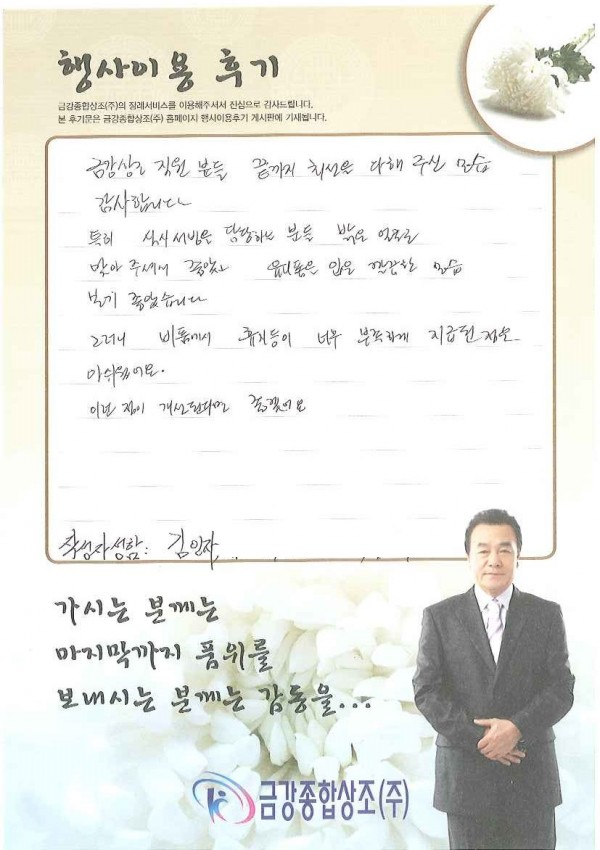 행사이용 후기
금강종합상조(주)의 장례서비스를 이용해주셔서 진심으로 감사드립니다.
본 후기문은 금강종합상조(주) 홈페이지 행사이용후기 게시판에 기재됩니다.
금강상조 직원 분들 끝까지 최선을 다해 주신 모습
감사합니다
특히 식사 서빙을 담당하는 분들 밝은 얼굴로
맞아 주셔서 좋았고 유니폼을 입은 모습
보기 좋았습니다
그러나 휴지등이 너무 부족하게 지급된 점은
아쉬웠어요.
이런 점이 개선된다면 좋겠어요
작성자성함: 김인자
가시는 분께는
마지막까지 품위를
보내시는 분께는 감동을...
금강종합상조(주)